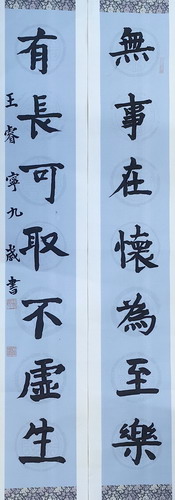 無事在懷為至樂
有長可取不虛生
王睿寧九歲書